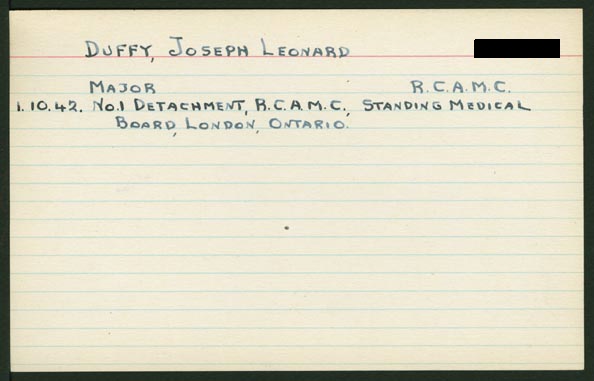 DUFFY, JOSEPH LEONARD
MAJOR R.C.A.M.C.
1.10.42. NO.1 DETACHMENT, R.C.A.M.C., STANDING MEDICAL
BOARD, LONDON, ONTARIO.